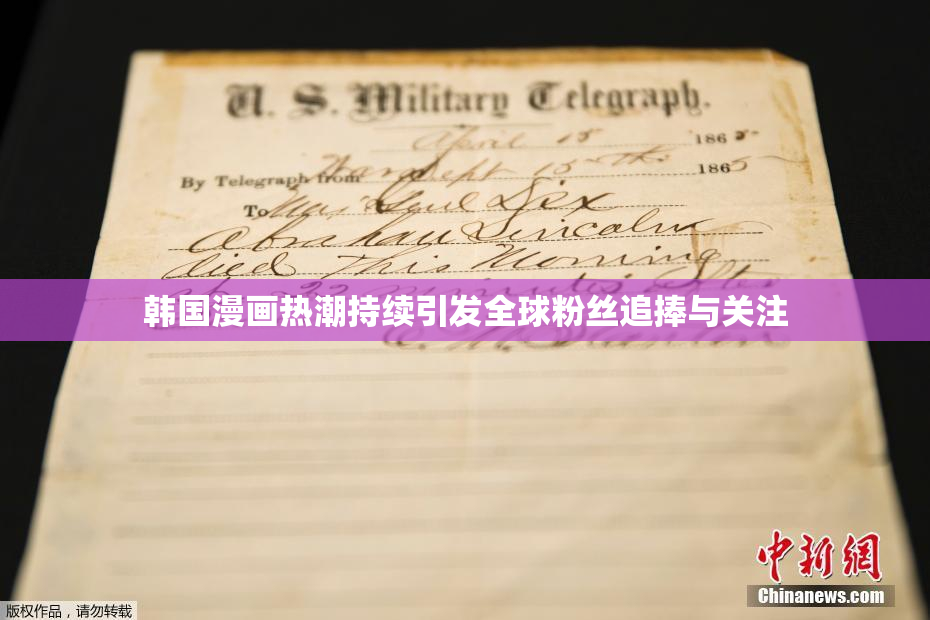 U. S. Military Telegraph.
April 15 1865
By Telegraph from War Dept 15th 1865
To Maj Genl Dix
Abraham Lincoln
died This Morning
22 minutes after
韩国漫画热潮持续引发全球粉丝追捧与关注
中新网
Chinanews.com
版权作品,请勿转载